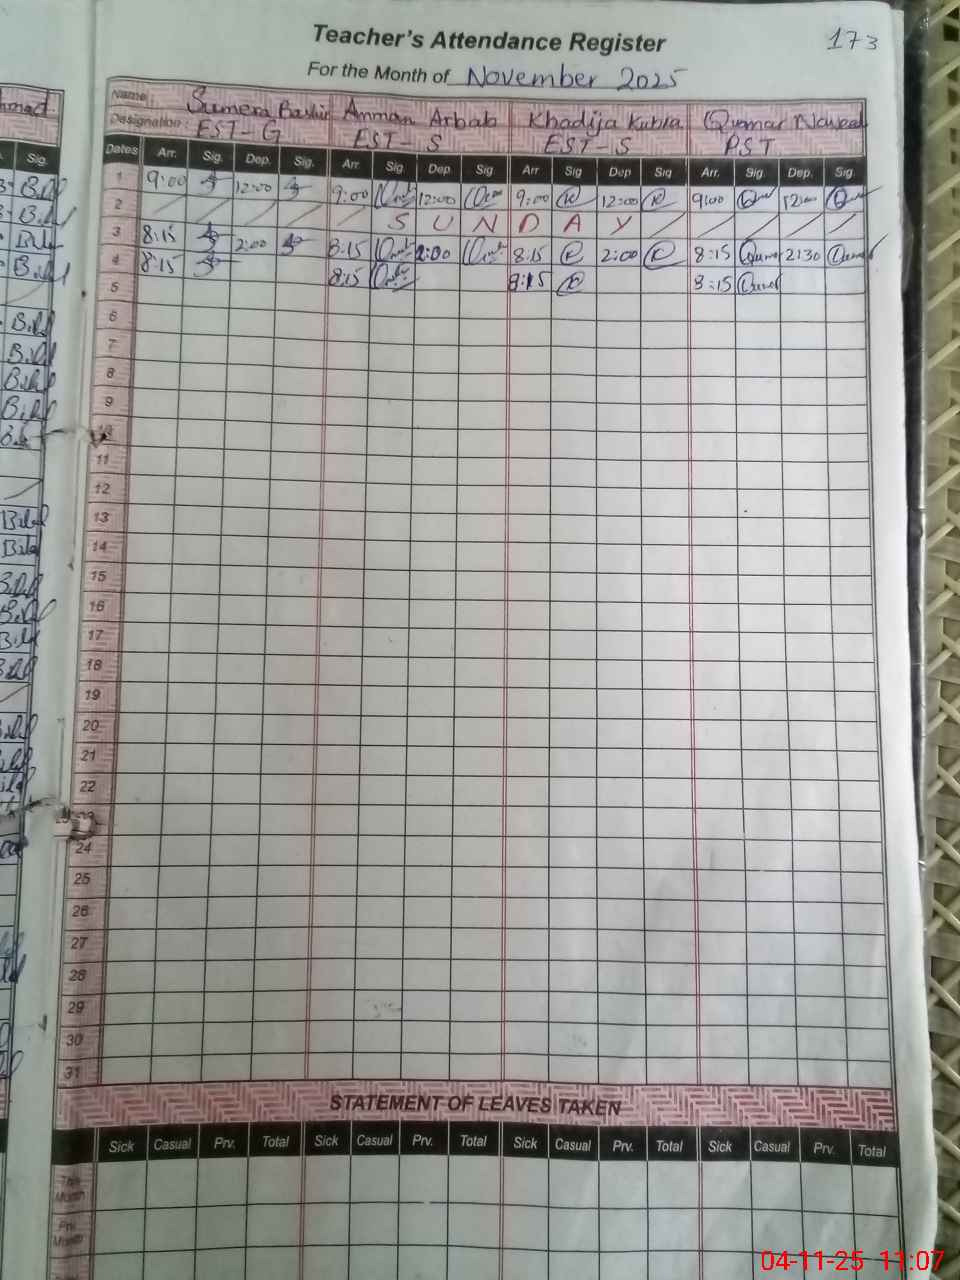 Teacher's Attendance Register
173
For the Month of November 2025
Name: Sumera Bashir Amman Arbab Khadija Kubra Qumar Naveed
Designation: EST-G EST-S EST-S PST
Dates Arr. Sig. Dep. Sig. Arr. Sig. Dep. Sig Arr Sig Dep Sig Arr. Sig. Dep. Sig.
1 9:00 12:00 9:00 12:00 9:00 12:00 9:00 12:00
2 SUNDAY
3 8:15 2:00 8:15 2:00 8:15 2:00 8:15 2:30
4 8:15 8:15 8:15 8:15
5
6
7
8
9
10
11
12
13
14
15
16
17
18
19
20
21
22
23
24
25
26
27
28
29
30
31
STATEMENT OF LEAVES TAKEN
Sick Casual Prv. Total Sick Casual Prv. Total Sick Casual Prv. Total Sick Casual Prv. Total
This Month
Prv. Month
04-11-25 11:07